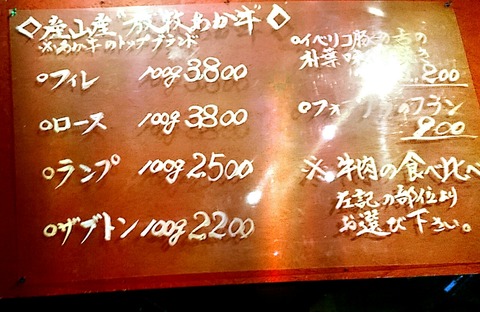 ◇産山産"放牧あか牛"◇
※あか牛のトップブランド
○フィレ 100g 3800
○ロース 100g 3800
○ランプ 100g 2500
○ザブトン 100g 2200
○イベリコ豚
朴葉味噌
200
○フォアグラのフラン
900
※牛肉の食べ比べ
左記の部位より
お選び下さい。